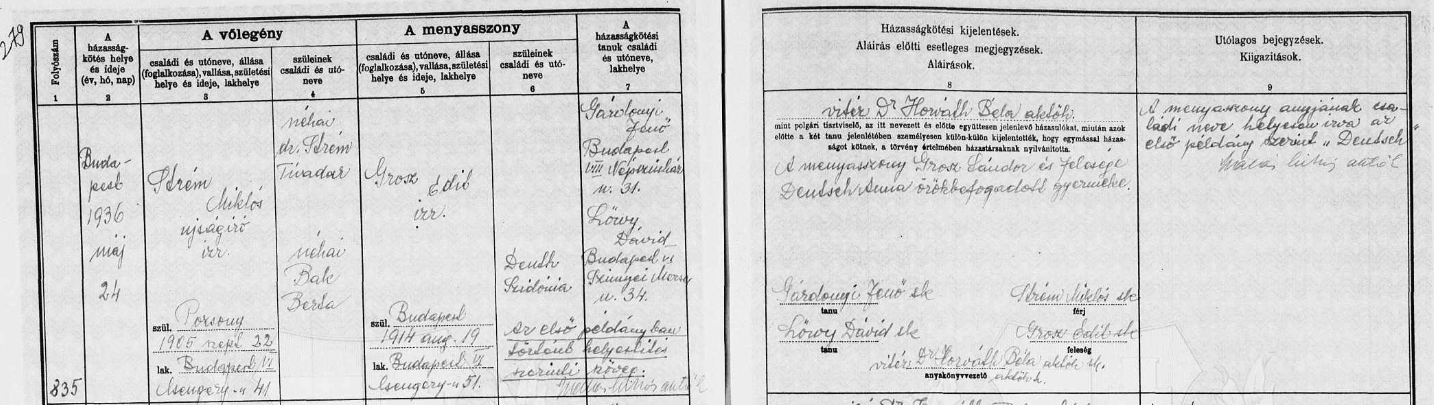 279
Folyószám
1
A
házasság-
kötés helye
és ideje
(év, hó, nap)
2
A vőlegény
családi és utóneve, állása
(foglalkozása), vallása, születési
helye és ideje, lakhelye
3
szüleinek
családi és utó-
neve
4
A menyasszony
családi és utóneve, állása
(foglalkozása), vallása, születési
helye és ideje, lakhelye
5
szüleinek
családi és utó-
neve
6
A
házasságkötési
tanuk családi
és utóneve,
lakhelye
7
835
Buda-
pest
1936
máj
24
Strém
Miklós
ujságíró
izr.
szül. Pozsony
1905 szept 22
lak. Budapest VI
Csengery-u 41.
néhai
dr. Strém
Tivadar
néhai
Bak
Berta
Grosz
Edit
izr.
szül. Budapest
1914 aug. 19
lak. Budapest VI
Csengery-u 51.
Deuth
Szidónia
Gárdonyi
Jenő
Budapest
VIII Népszinház
u. 31.
Lőwy
Dávid
Budapest VI
Szinyei Merse
u. 34.
Az első példányban
történt helyesbítés
szerinti szöveg.
Házasságkötési kijelentések.
Aláírás előtti esetleges megjegyzések.
Aláírások.
8
vitéz Dr Horváth Béla aktőh.
mint polgári tisztviselő, az itt nevezett és előtte együttesen jelenlevő házasulókat, miután azok
előtte a két tanu jelenlétében személyesen külön-külön kijelentették, hogy egymással házas-
ságot kötnek, a törvény értelmében házastársaknak nyilvánította.
A menyasszony Grosz Sándor és felesége
Deutsch Anna örökbefogadott gyermeke.
Gárdonyi Jenő sk Strém Miklós sk
tanu férj
Lőwy Dávid sk Grosz Edit sk
tanu feleség
vitéz Dr Horváth Béla aktőh sk.
anyakönyvvezető aktőh.
Utólagos bejegyzések.
Kiigazítások.
9
A menyasszony anyjának csa-
ládi neve helyesen írva az
első példány szerint „Deutsch"